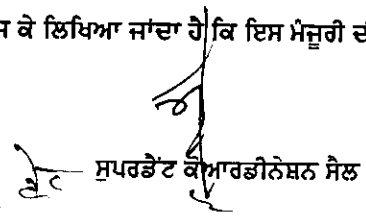 ਕੇ ਲਿਖਿਆ ਜਾਂਦਾ ਹੈ ਕਿ ਇਸ ਮੰਜੂਰੀ
ਸੁਪਰਡੈਂਟ ਕੋਆਰਡੀਨੇਸ਼ਨ ਸੈਲ